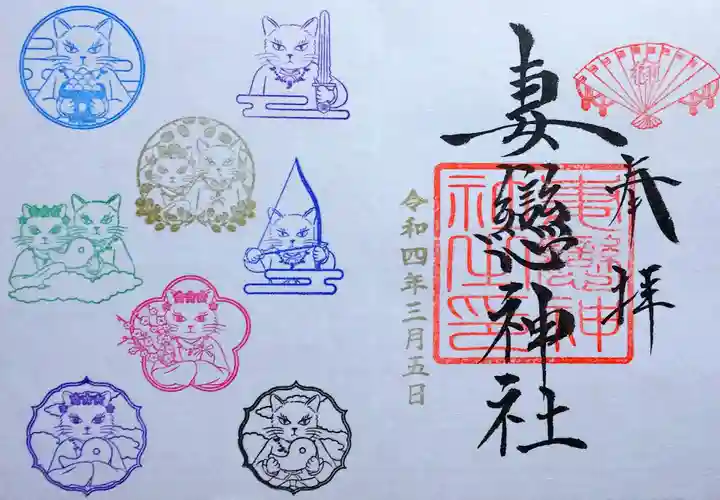 奉拝
妻戀神社
妻戀神
社印
令和四年三月五日